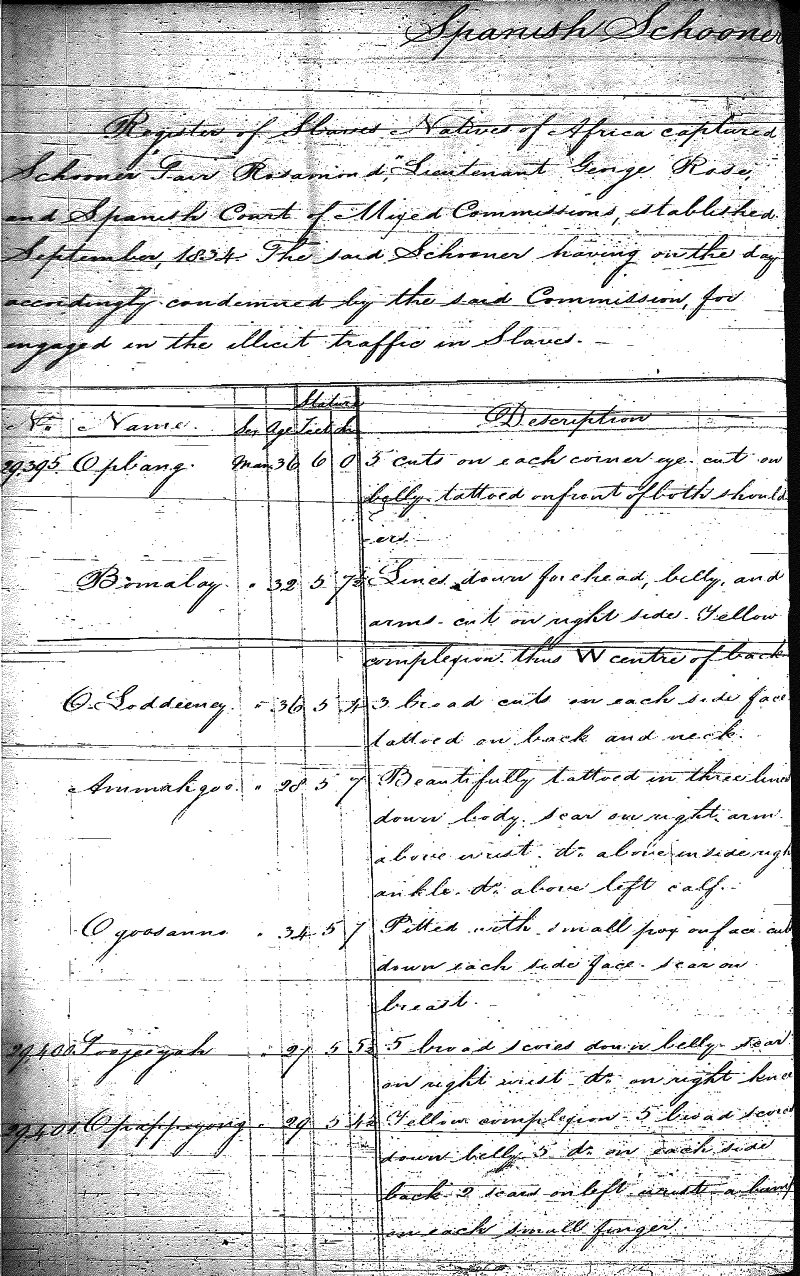 Spanish Schooner
Register of Slaves Natives of Africa captured
Schooner Fair Rosamond," Lieutenant George Rose,
and Spanish Court of Mixed Commissions, established
September, 1834. The said Schooner having on the day
accordingly condemned by the said Commission, for
engaged in the illicit traffic in Slaves. -
Stature
No. Name. Sex Age Feet In Description
29.395. Opbang. Man. 36 6 0 5 cuts on each corner eye. cut on
belly. tattoed on front of both should
ers.
Bomalay. " 32 5 7½ Lines down forehead, belly, and
arms. cut on right side. Yellow
complexion. thus W centre of back
O. Loddeeney. " 36 5 4 3 broad cuts on each side face
tattoed on back and neck.
Ammahgoo. " 28 5 7 Beautifully tattoed in three lines
down body. scar on right arm
above wrist. do. above inside righ
ankle. do. above left calf.
Ogoosanno " 34 5 7 Pitted with small pox on face. cut
down each side face. scar on
breast.
29,400 Toojeeyah " 27 5 5½ 5 broad scores down belly. scar
on right wrist. do. on right knee
29,401 Opappeyong. " 29 5 4½ Yellow complexion. 5 broad scores
down belly 5 do. on each side
back 2 scars on left wrist. a bump
on each small finger.